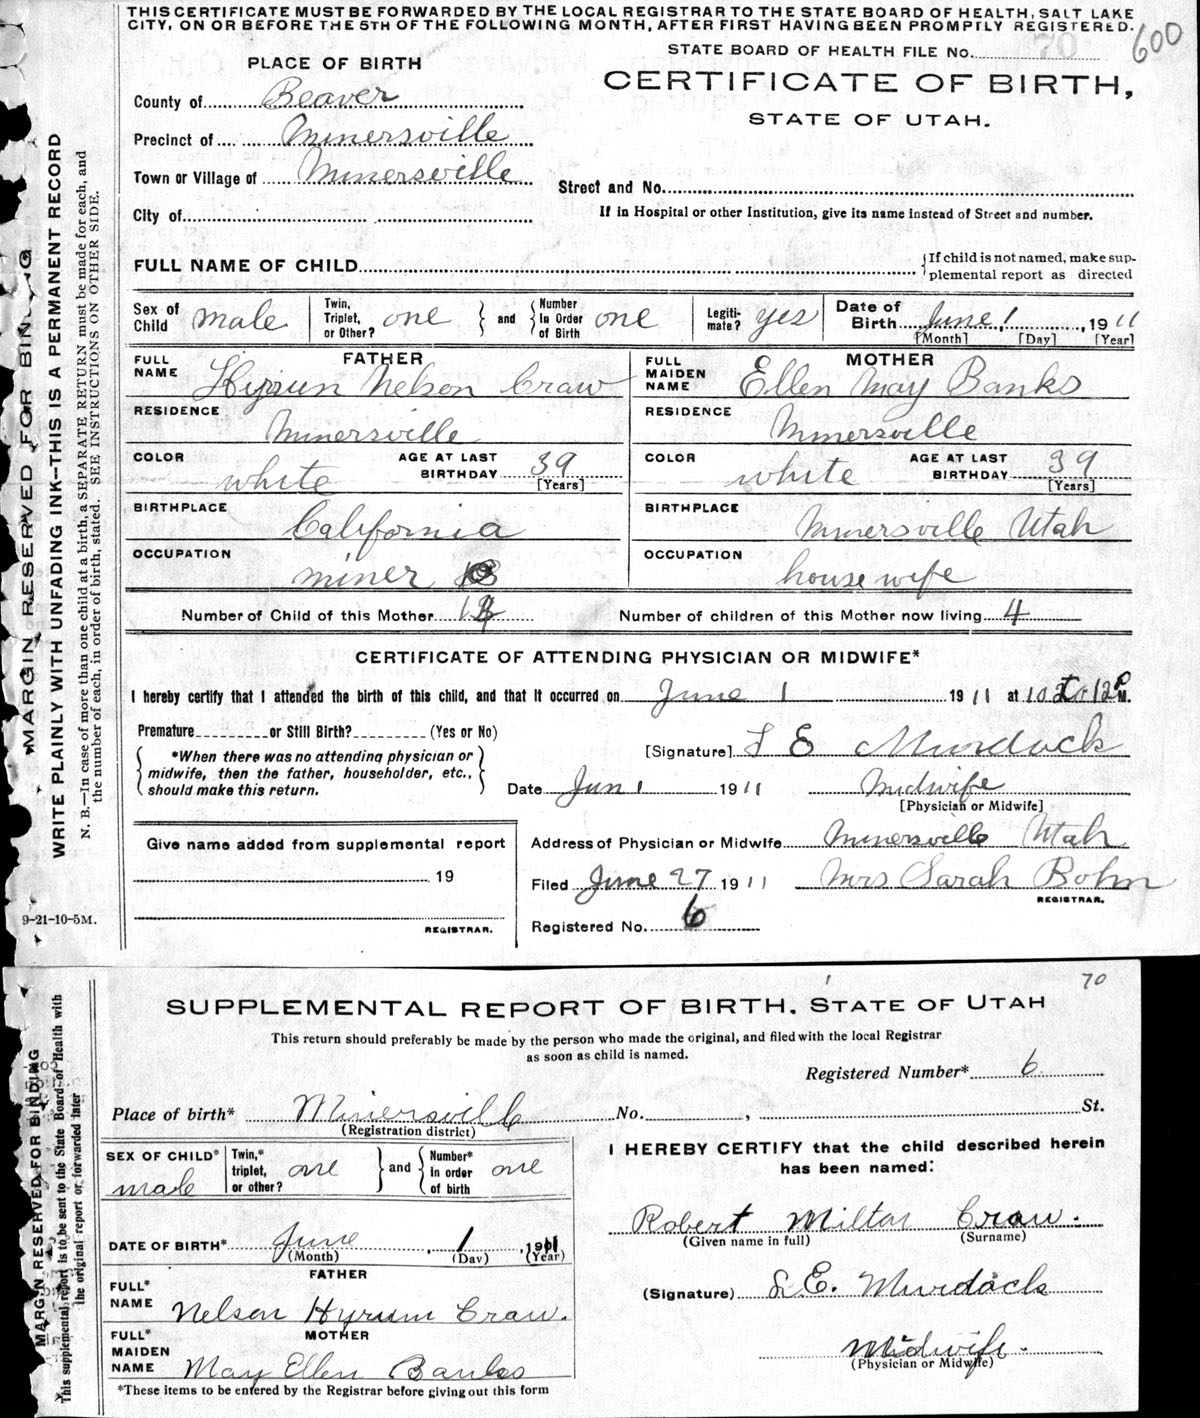 THIS CERTIFICATE MUST BE FORWARDED BY THE LOCAL REGISTRAR TO THE STATE BOARD OF HEALTH, SALT LAKE
CITY, ON OR BEFORE THE 5TH OF THE FOLLOWING MONTH, AFTER FIRST HAVING BEEN PROMPTLY REGISTERED.
600
STATE BOARD OF HEALTH FILE No.
PLACE OF BIRTH
CERTIFICATE OF BIRTH,
STATE OF UTAH.
County of Beaver
Precinct of Minersville
Town or Village of Minersville
Street and No.
City of
If in Hospital or other Institution, give its name instead of Street and number.
FULL NAME OF CHILD
If child is not named, make sup-
plemental report as directed
Sex of Child male
Twin, Triplet, or Other? one and Number in Order of Birth one
Legiti-mate? yes
Date of Birth June 1, 1911
[Month] [Day] [Year]
FATHER
FULL NAME Hyrum Nelson Craw
RESIDENCE Minersville
COLOR white AGE AT LAST BIRTHDAY 39
[Years]
BIRTHPLACE California
OCCUPATION miner
MOTHER
FULL MAIDEN NAME Ellen May Banks
RESIDENCE Minersville
COLOR white AGE AT LAST BIRTHDAY 39
[Years]
BIRTHPLACE Minersville Utah
OCCUPATION housewife
Number of Child of this Mother
Number of children of this Mother now living 4
CERTIFICATE OF ATTENDING PHYSICIAN OR MIDWIFE*
I hereby certify that I attended the birth of this child, and that it occurred on June 1 1911 at 10 to 12 P M.
Premature or Still Birth? (Yes or No)
*When there was no attending physician or
midwife, then the father, householder, etc.,
should make this return.
[Signature] L E Murdock
Date Jun 1 1911 Midwife
[Physician or Midwife]
Give name added from supplemental report
19
REGISTRAR.
Address of Physician or Midwife Minersville Utah
Filed June 27 1911 Mrs Sarah Bohn
REGISTRAR.
Registered No. 6
MARGIN RESERVED FOR BINDING
WRITE PLAINLY WITH UNFADING INK—THIS IS A PERMANENT RECORD
N. B.—In case of more than one child at a birth, a SEPARATE RETURN must be made for each, and
the number of each, in order of birth, stated. SEE INSTRUCTIONS ON OTHER SIDE.
9-21-10-5M.
70
SUPPLEMENTAL REPORT OF BIRTH. STATE OF UTAH
This return should preferably be made by the person who made the original, and filed with the local Registrar
as soon as child is named.
Registered Number* 6
Place of birth* Minersville No. , St.
(Registration district)
SEX OF CHILD* male
Twin,* triplet, or other? one and Number* in order of birth one
DATE OF BIRTH* June 1, 1911
(Month) (Day) (Year)
FATHER
FULL* NAME Nelson Hyrum Craw.
MOTHER
FULL* MAIDEN NAME May Ellen Banks
*These items to be entered by the Registrar before giving out this form
I HEREBY CERTIFY that the child described herein
has been named:
Robert Milton Craw.
(Given name in full) (Surname)
(Signature) L E. Murdock
Midwife.
(Physician or Midwife)
MARGIN RESERVED FOR BINDING
This supplemental report is to be sent to the State Board of Health with
the original report or forwarded later